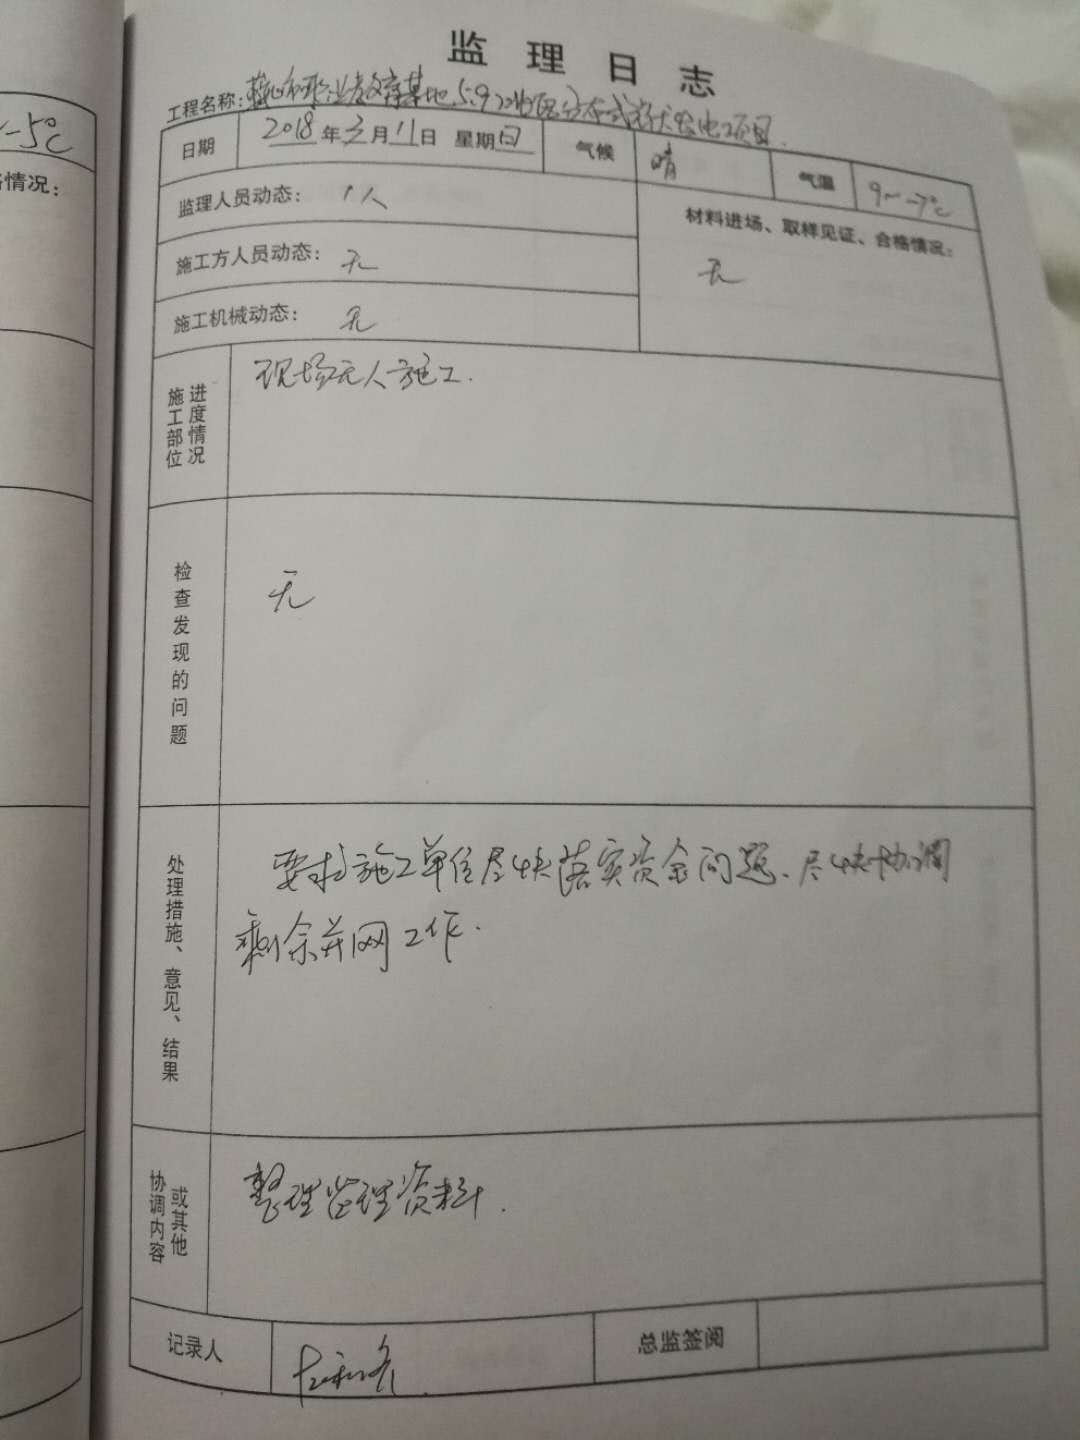 监理日志
工程名称: 职业教育基地5.9 分布式光伏发电项目.
~-5℃
情况：
日期 2018年3月11日 星期日 气候 晴 气温 9~-7℃
监理人员动态： 1人
材料进场、取样见证、合格情况：
无
施工方人员动态： 无
施工机械动态： 无
施工部位
进度情况
现场无人施工.
检查发现的问题
无
处理措施、意见、结果
要求施工单位尽快落实资金问题、尽快协调
剩余并网工作.
协调内容
或其他
整理监理资料.
记录人
总监签阅